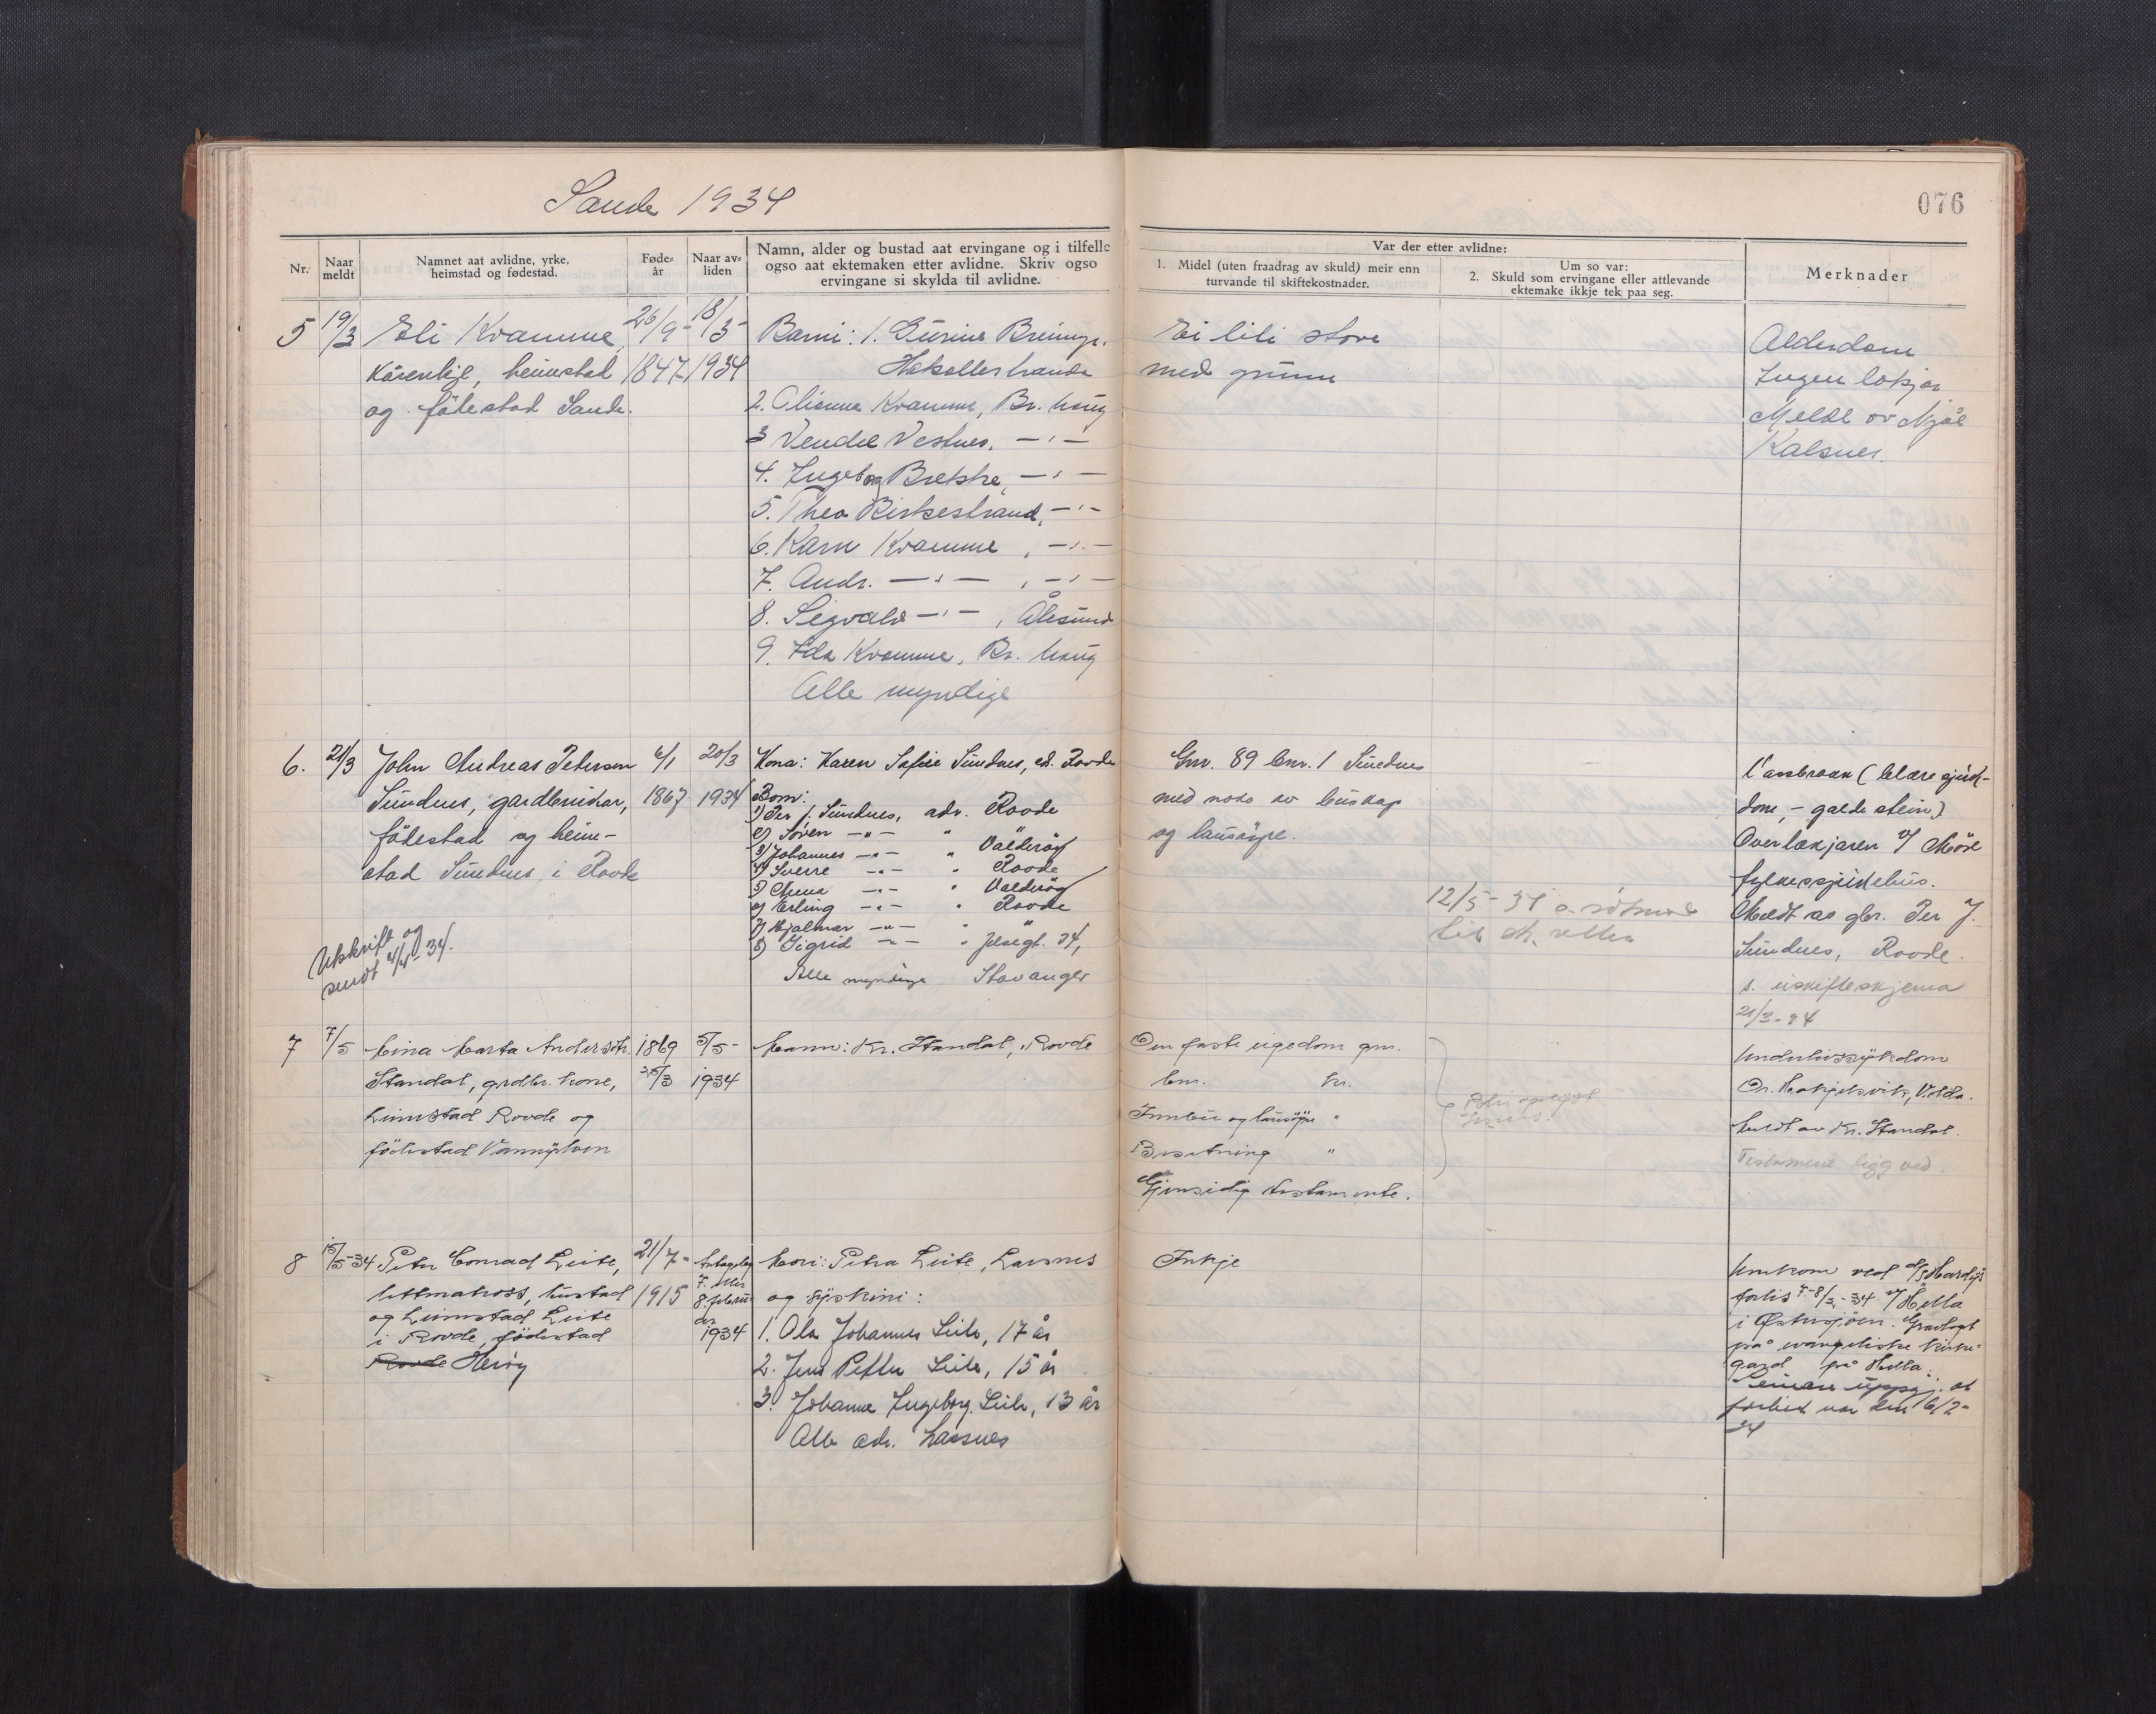 Sande 1934
076
Nr.
Naar meldt
Namnet aat avlidne, yrke, heimstad og fødestad.
Føde-år
Naar av-liden
Namn, alder og bustad aat ervingane og i tilfelle ogso aat ektemaken etter avlidne. Skriv ogso ervingane si skylda til avlidne.
Var der etter avlidne:
1. Midel (uten fraadrag av skuld) meir enn turvande til skiftekostnader.
Um so var:
2. Skuld som ervingane eller attlevande ektemake ikkje tek paa seg.
Merknader
5
19/3
Eli Kvamme,
heimstad
og fødestad Sande.
26/9-
1847
18/3-
1934
Barni: 1.
2. Kvamme, Br. haug
3 Vestnes, -"-
4. Ingeborg Brekke, -"-
5. Thea -"-
6. Karn Kvamme, -"-
7. Andr. -"-, -"-
8. Sigvald -"-, Ålesund
9. Ida Kvamme, Br. haug
Alle myndige
Ei liti stove
med grunn
Alderdom
Ingen lækjar
Meldt av
Kalsnes.
6.
21/3
John Andreas Petersen
Sundnes, gardbrukar,
födestad og heim-
stad Sundnes i Rovde
Utskrift og
sendt
6/1
1867
20/3
1934
Kona: Karen Sundnes, ad. Rovde
Born:
1) Per J. Sundnes, adr. Rovde
2) Søren -"- "
3) Johannes -"- " Valderöy
4) Sverre -"- " Rovde
5) Anna -"- " Valderöy
6) Erling -"- " Rovde
7) Hjalmar -"- "
8) Sigrid -"- " 34,
Alle myndige Stavanger
Gnr. 89 bnr. 1 Sundnes
med noko av buskap
og lausöyre.
12/5-34
til
(blære sjuk-
dom, - galde stein)
Overlækjaren v/ Møre
fylkessjukehus.
Meldt av gbr. Per J.
Sundnes, Rovde.
s. uskifteskjema
21/3-34
7
7/5
Marta
Standal, grdbr. kone,
heimstad Rovde og
födestad Vannylven
1869
5/5-
1934
Mann: Kr. Standal, Rovde
Den faste eigedom gnr.
bnr. kr.
Innbu og lausöyre "
Besetning "
Gjensidig testamente.
Underlivssjukdom
Dr. Volda.
Meldt av Kr. Standal.
Testament ligg ved.
8
15/5-34
Peter Conrad Leite,
lettmatros, bustad
og heimstad Leite
i Rovde, födestad
Rovde Heröy
21/7-
1915
Antageleg
7. eller
8. februar
1934
Mori: Petra Leite, Larsnes
og syskini:
1. Ola Johannes Leite, 17 år
2. Jens Petter Leite, 15 år
3. Johanna Ingeborg Leite, 13 år
Alle adr. Larsnes
Inkje
Umkom ved
forlis 7-8/2-34
i Østersjöen. Gravlagt
på evangeliske kirke-
gard på
Seinare uppgj. at
forliset var den 6/2-
34